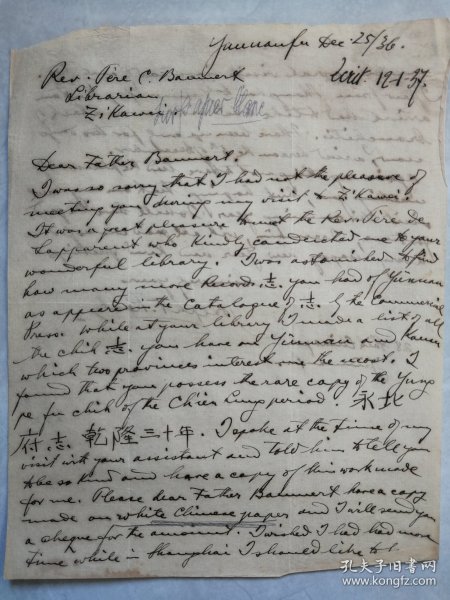 Yunnanfu Dec. 25/36.
Rev. Père C. Baumert
Librarian
Zi Kawei.
écrit 19-1-37.
Dear Father Baumert.
I was so sorry that I had not the pleasure of
meeting you during my visit to Zi Kawei.
It was a great pleasure to meet the Rev. Père de
Lapparent who kindly conducted me to your
wonderful library. I was astonished to find
how many more records 志 you had of Yunnan
as appear in the Catalogue of 志 of the Commercial
Press. While at your library I made a list of all
the chih 志 you have on Yunnan and Kansu
which two provinces interest me the most. I
found that you possess the rare copy of the Yung
pe fu chih of the Chien Lung period. 永北
府志 乾隆三十年. I spoke at the time of my
visit with your assistant and told him to tell you
to be so kind and have a copy of this work made
for me. Please dear Father Baumert have a copy
made on white Chinese paper and I will send you
a cheque for the amount. I wished I had had more
time while in Shanghai I should like to
孔夫子旧书网
www.kongfz.com